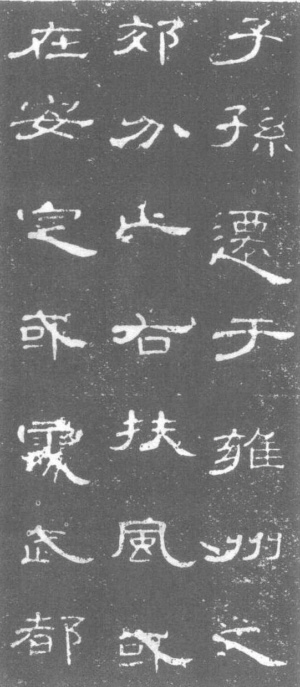 子孫遷于雍州之
郊分止右扶風或
在安定或處武都